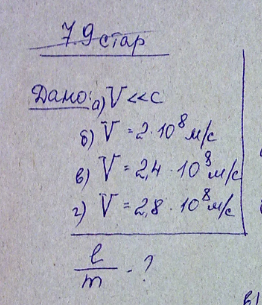 7.9 стар
Дано: а) V<<c
б) V = 2·10⁸ м/с
в) V = 2,4·10⁸ м/с
г) V = 2,8·10⁸ м/с
e/m - ?
в)